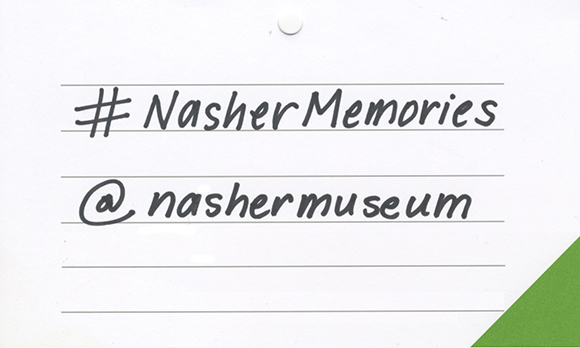 #NasherMemories
@nashermuseum